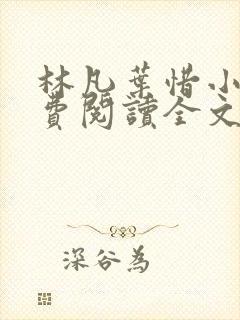 林凡葉惜小
費閱讀全文
深谷為